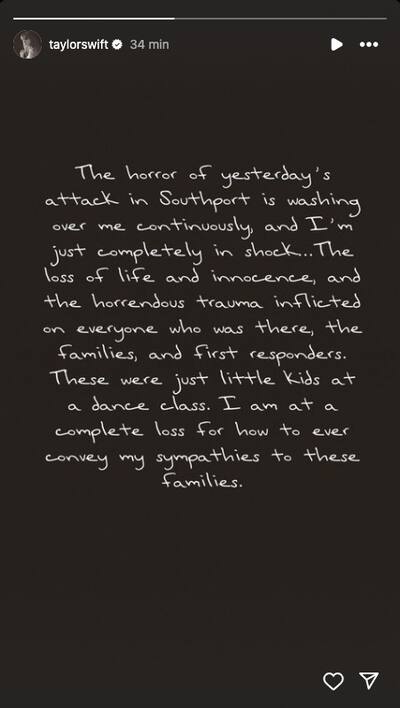 taylorswift 34 min
The horror of yesterday's
attack in Southport is washing
over me continuously, and I'm
just completely in shock...The
loss of life and innocence, and
the horrendous trauma inflicted
on everyone who was there, the
families, and first responders.
These were just little kids at
a dance class. I am at a
complete loss for how to ever
convey my sympathies to these
families.